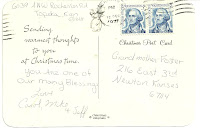 Topeka, Kan
Sending
warmest thoughts
to you
at Christmas time.
You are one of
our many Blessings
Love
Carol, Mike
& Jeff
Christmas Post Card
Grandmother Foster
216 East 3rd
Newton Kansas
67114